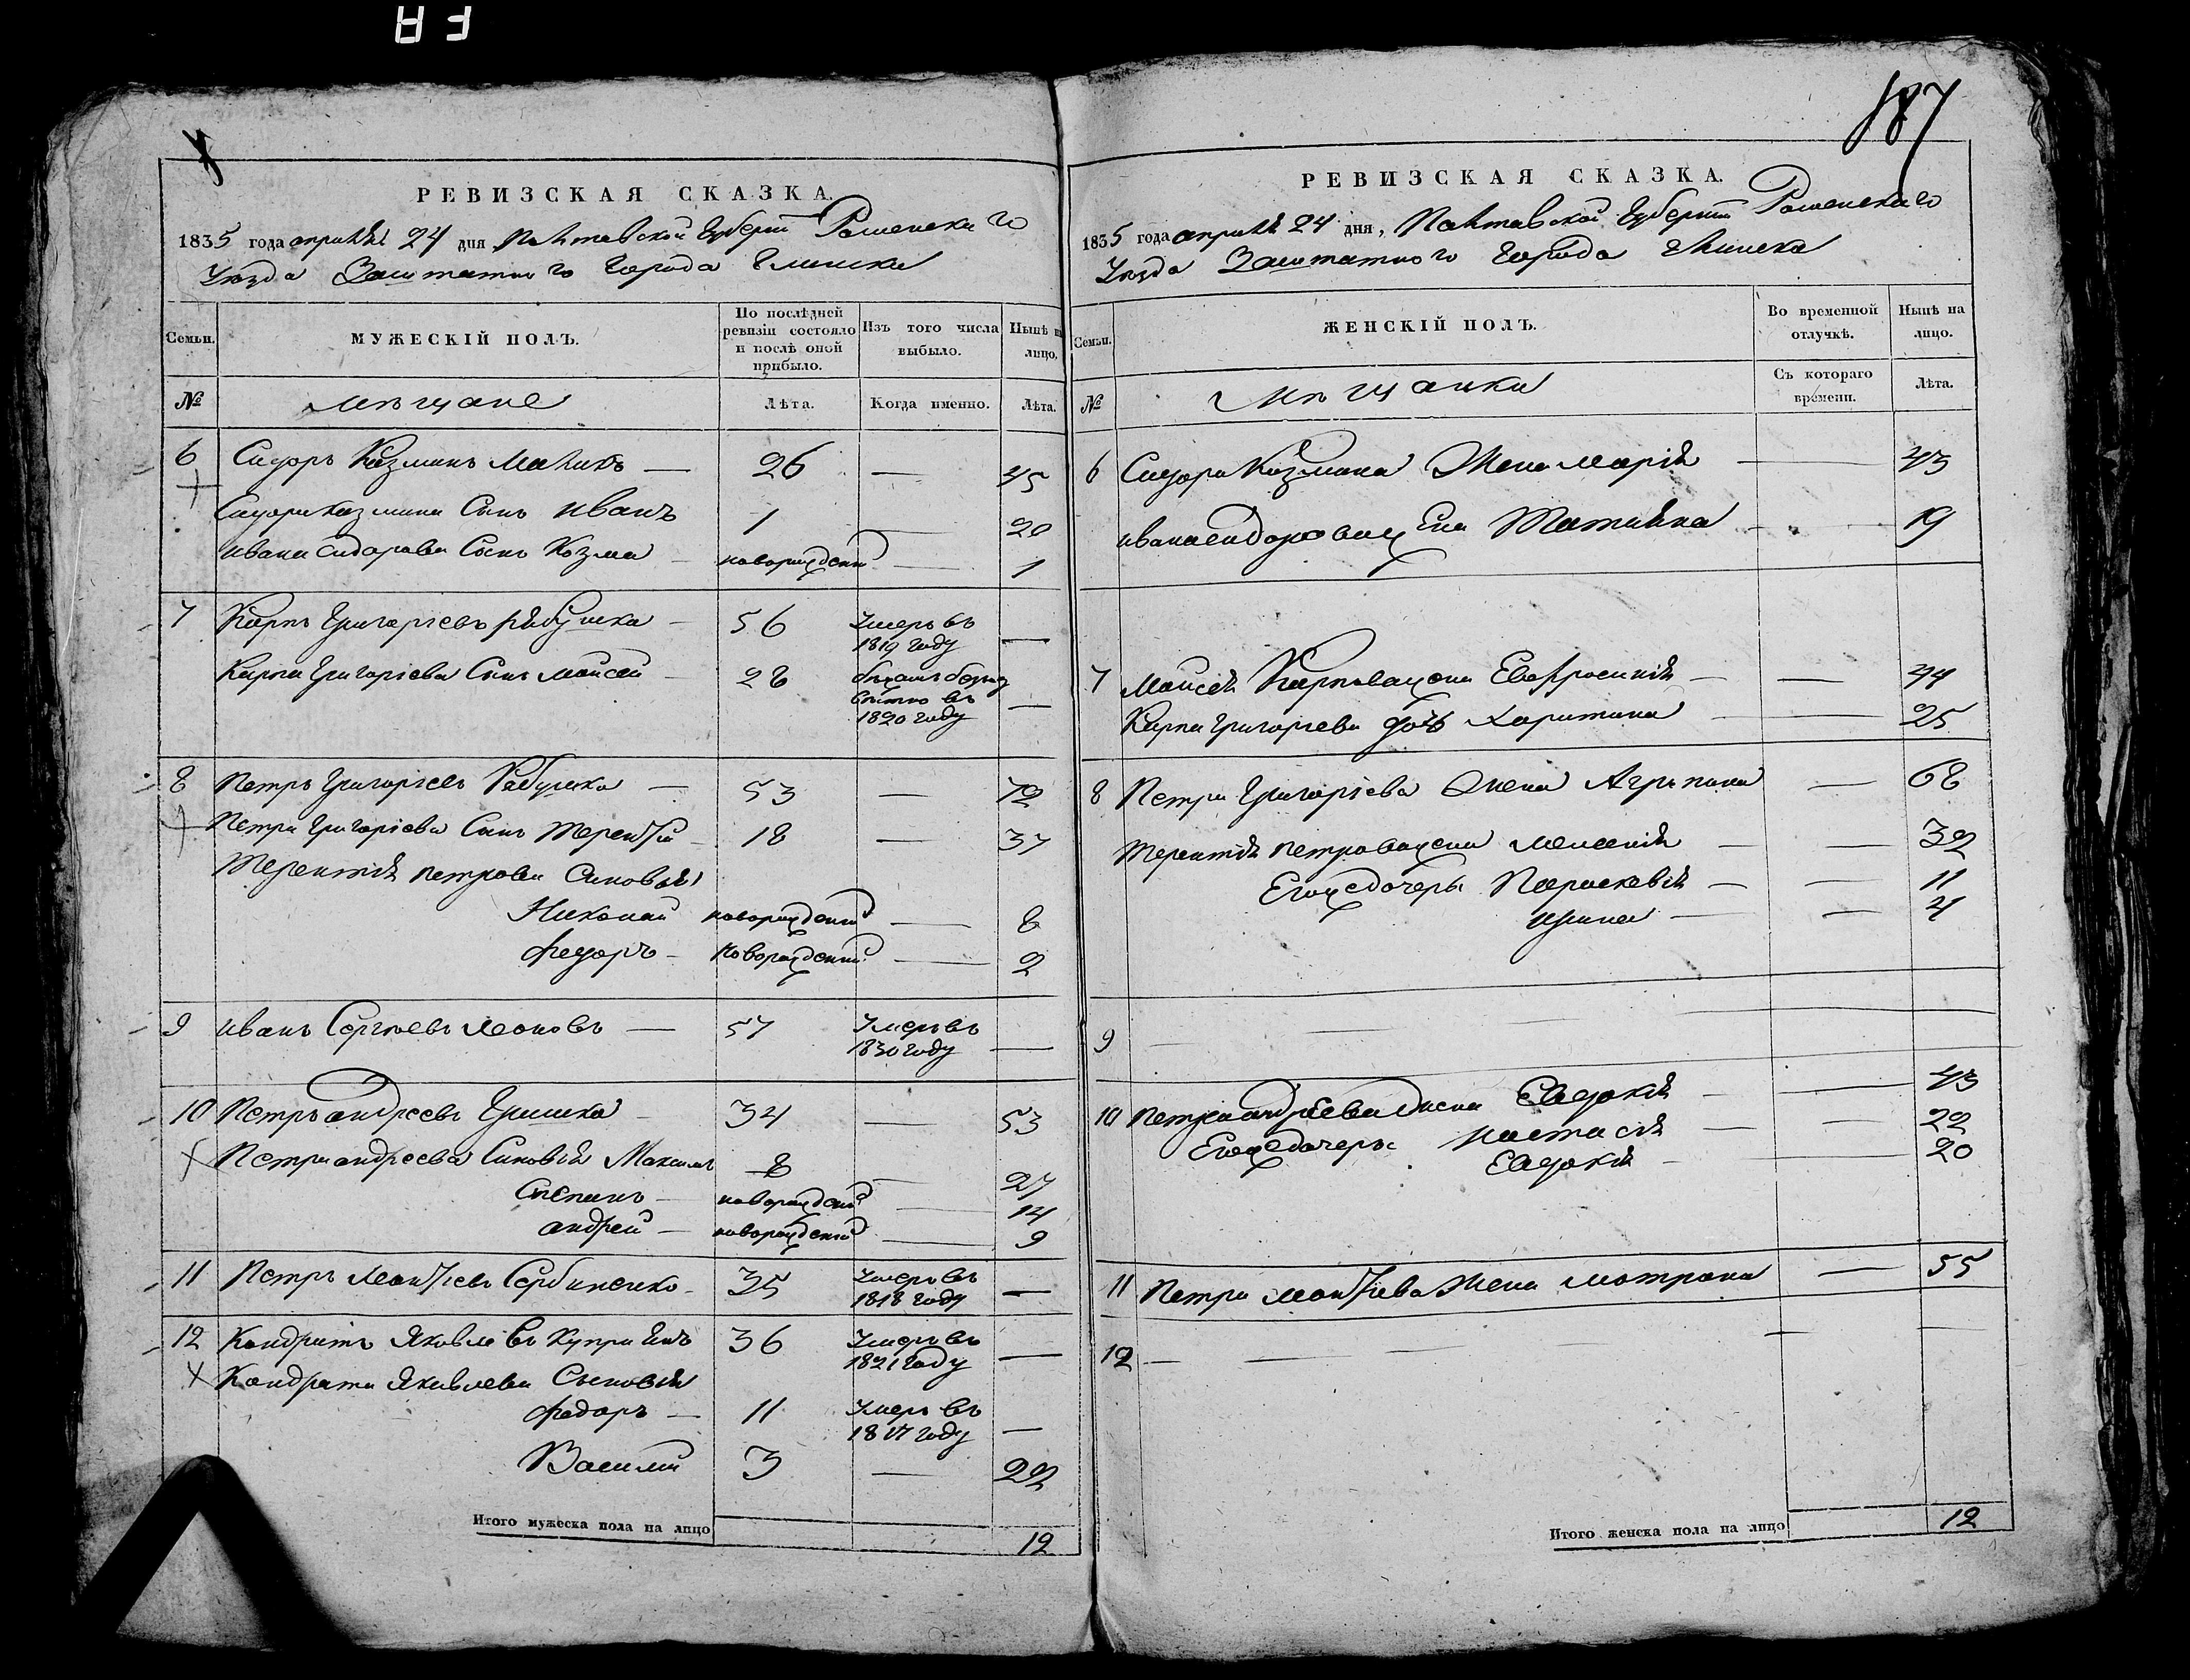 187
РЕВИЗСКАЯ СКАЗКА.
1835 года апреля 24 дня Полтавской Губернии Роменскаго
Уезда Заштатного Города Глинска
Семьи.
МУЖЕСКІЙ ПОЛЪ.
По послѣдней ревизіи состояло и послѣ оной прибыло.
Изъ того числа выбыло.
Нынѣ на лицо.
№
мѣщане
Лѣта.
Когда именно.
Лѣта.
6 Сидоръ Козминъ — 26 — 45
Сидора Козмина Сынъ Иванъ 1 — 20
Ивана Сидорова Сынъ Козма новорожденный — 1
7 Карпъ Григоріевъ Рябушка 56 Умеръ въ 1819 году —
Карпа Григоріева Сынъ Моисей 28 въ 1820 году —
8 Петръ Григоріевъ Рябушка — 53 — 72
Петра Григоріева Сынъ Терентій 18 — 37
Терентія Петрова Сыновья
Николай новорожденный — 8
Федоръ новорожденный — 2
9 Иванъ Сергѣевъ Леоновъ — 57 Умеръ въ 1830 году —
10 Петръ Андреевъ Гришка 34 — 53
Петра Андреева Сыновья Максимъ 8 — 27
Степанъ — новорожденный — 14
Андрей — новорожденный — 9
11 Петръ Леонтіевъ Сербиненко 35 Умеръ въ 1818 году —
12 Кондратъ Яковлевъ 36 Умеръ въ 1821 году —
Кондрата Яковлева Сыновья
Федоръ — 11 Умеръ въ 1817 году —
Василий 3 — 22
Итого мужеска пола на лицо 12
РЕВИЗСКАЯ СКАЗКА.
1835 года апреля 24 дня, Полтавской Губернии Роменскаго
Уезда Заштатного Города Глинска
Семьи.
ЖЕНСКІЙ ПОЛЪ.
Во временной отлучкѣ.
Нынѣ на лицо.
№
Мѣщанки
Съ котораго времени.
Лѣта.
6 Сидора Козмина Жена Марія — 43
Ивана Сидорова жена Татияна — 19
7 Моисея Карпова жена Евфросиния — 44
Карпа Григоріева дочь Харитина — 25
8 Петра Григоріева Жена Агрипина — 68
Терентія Петрова жена — 32
Егожедочеры Параскевія — 11
Ирина — 4
9 —
10 Петра Андреева Жена Евдокія — 43
Егожедочеры Настасія — 22
Евдокія — 20
11 Петра Леонтіева Жена Мотрона — 55
12 —
Итого женска пола на лицо 12